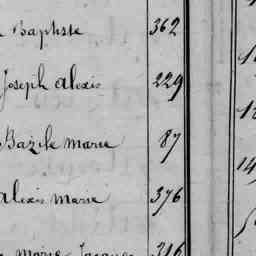 Baptiste 362
Joseph Alexis 229
Bazile Marie 87
Alexis Marie 376
Marie Jacques 316